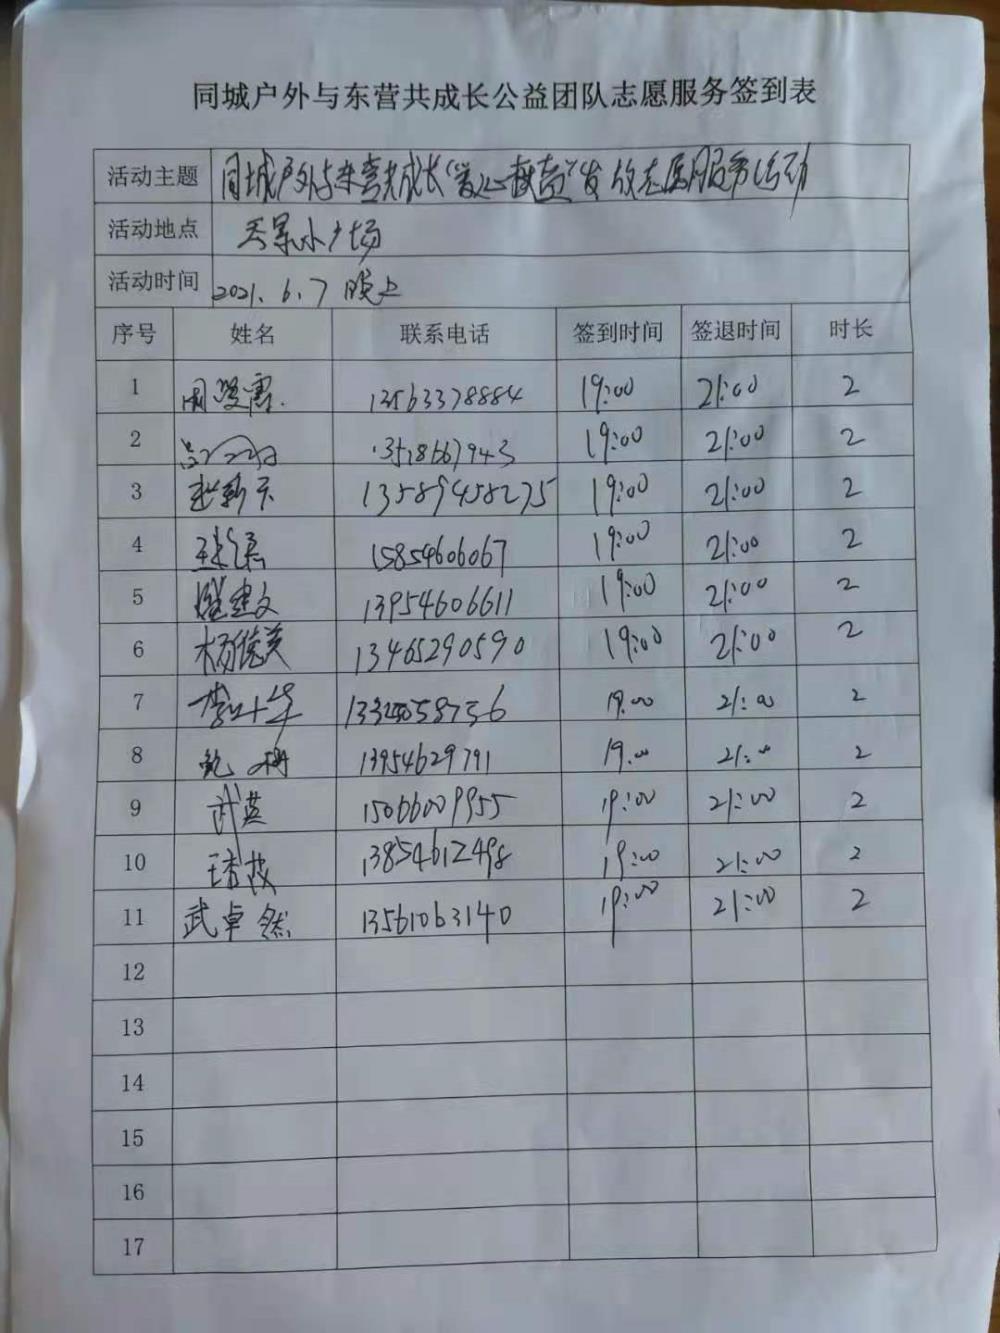 同城户外与东营共成长公益团队志愿服务签到表
活动主题 同城户外与东营共成长“爱心救苗”发放志愿服务活动
活动地点 天景小广场
活动时间 2021.6.7 晚上
序号 姓名 联系电话 签到时间 签退时间 时长
1 13563378884 19:00 21:00 2
2 13518667943 19:00 21:00 2
3 赵新天 13589458275 19:00 21:00 2
4 15854606067 19:00 21:00 2
5 建文 13954606611 19:00 21:00 2
6 杨德英 13465290590 19:00 21:00 2
7 19:00 21:00 2
8 13954629791 19:00 21:00 2
9 武英 15066009955 19:00 21:00 2
10 13854612498 19:00 21:00 2
11 武卓然 13561063140 19:00 21:00 2
12
13
14
15
16
17